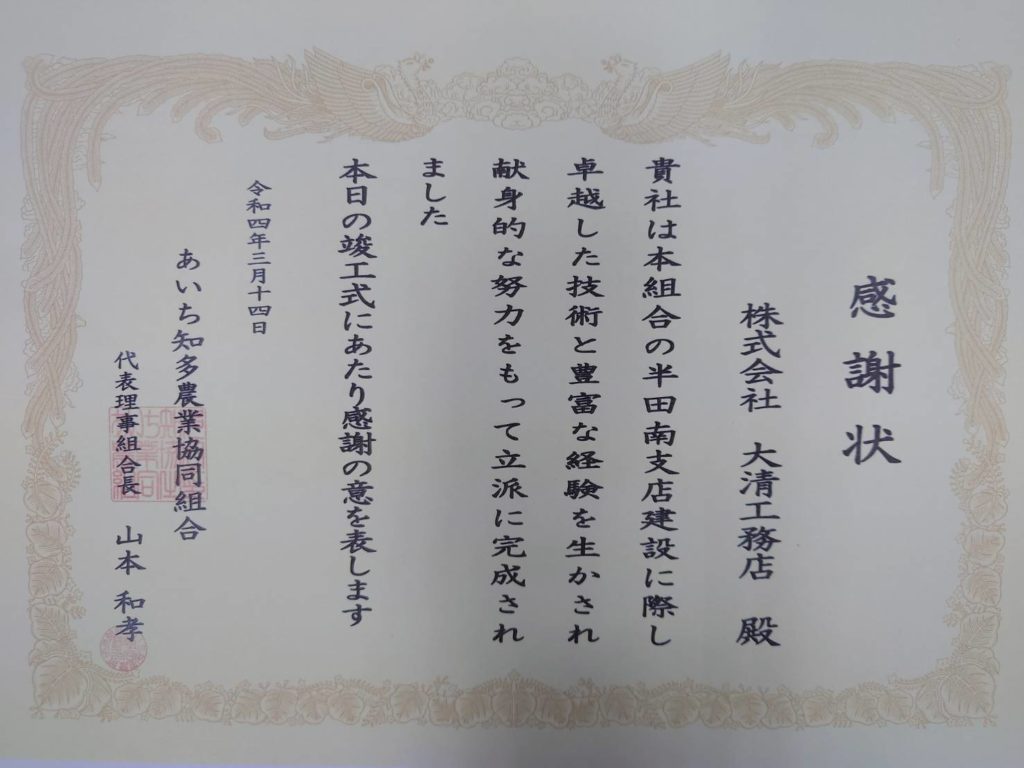 感謝状
株式会社 大清工務店 殿
貴社は本組合の半田南支店建設に際し
卓越した技術と豊富な経験を生かされ
献身的な努力をもって立派に完成され
ました
本日の竣工式にあたり感謝の意を表します
令和四年三月十四日
あいち知多農業協同組合
代表理事組合長 山本 和孝